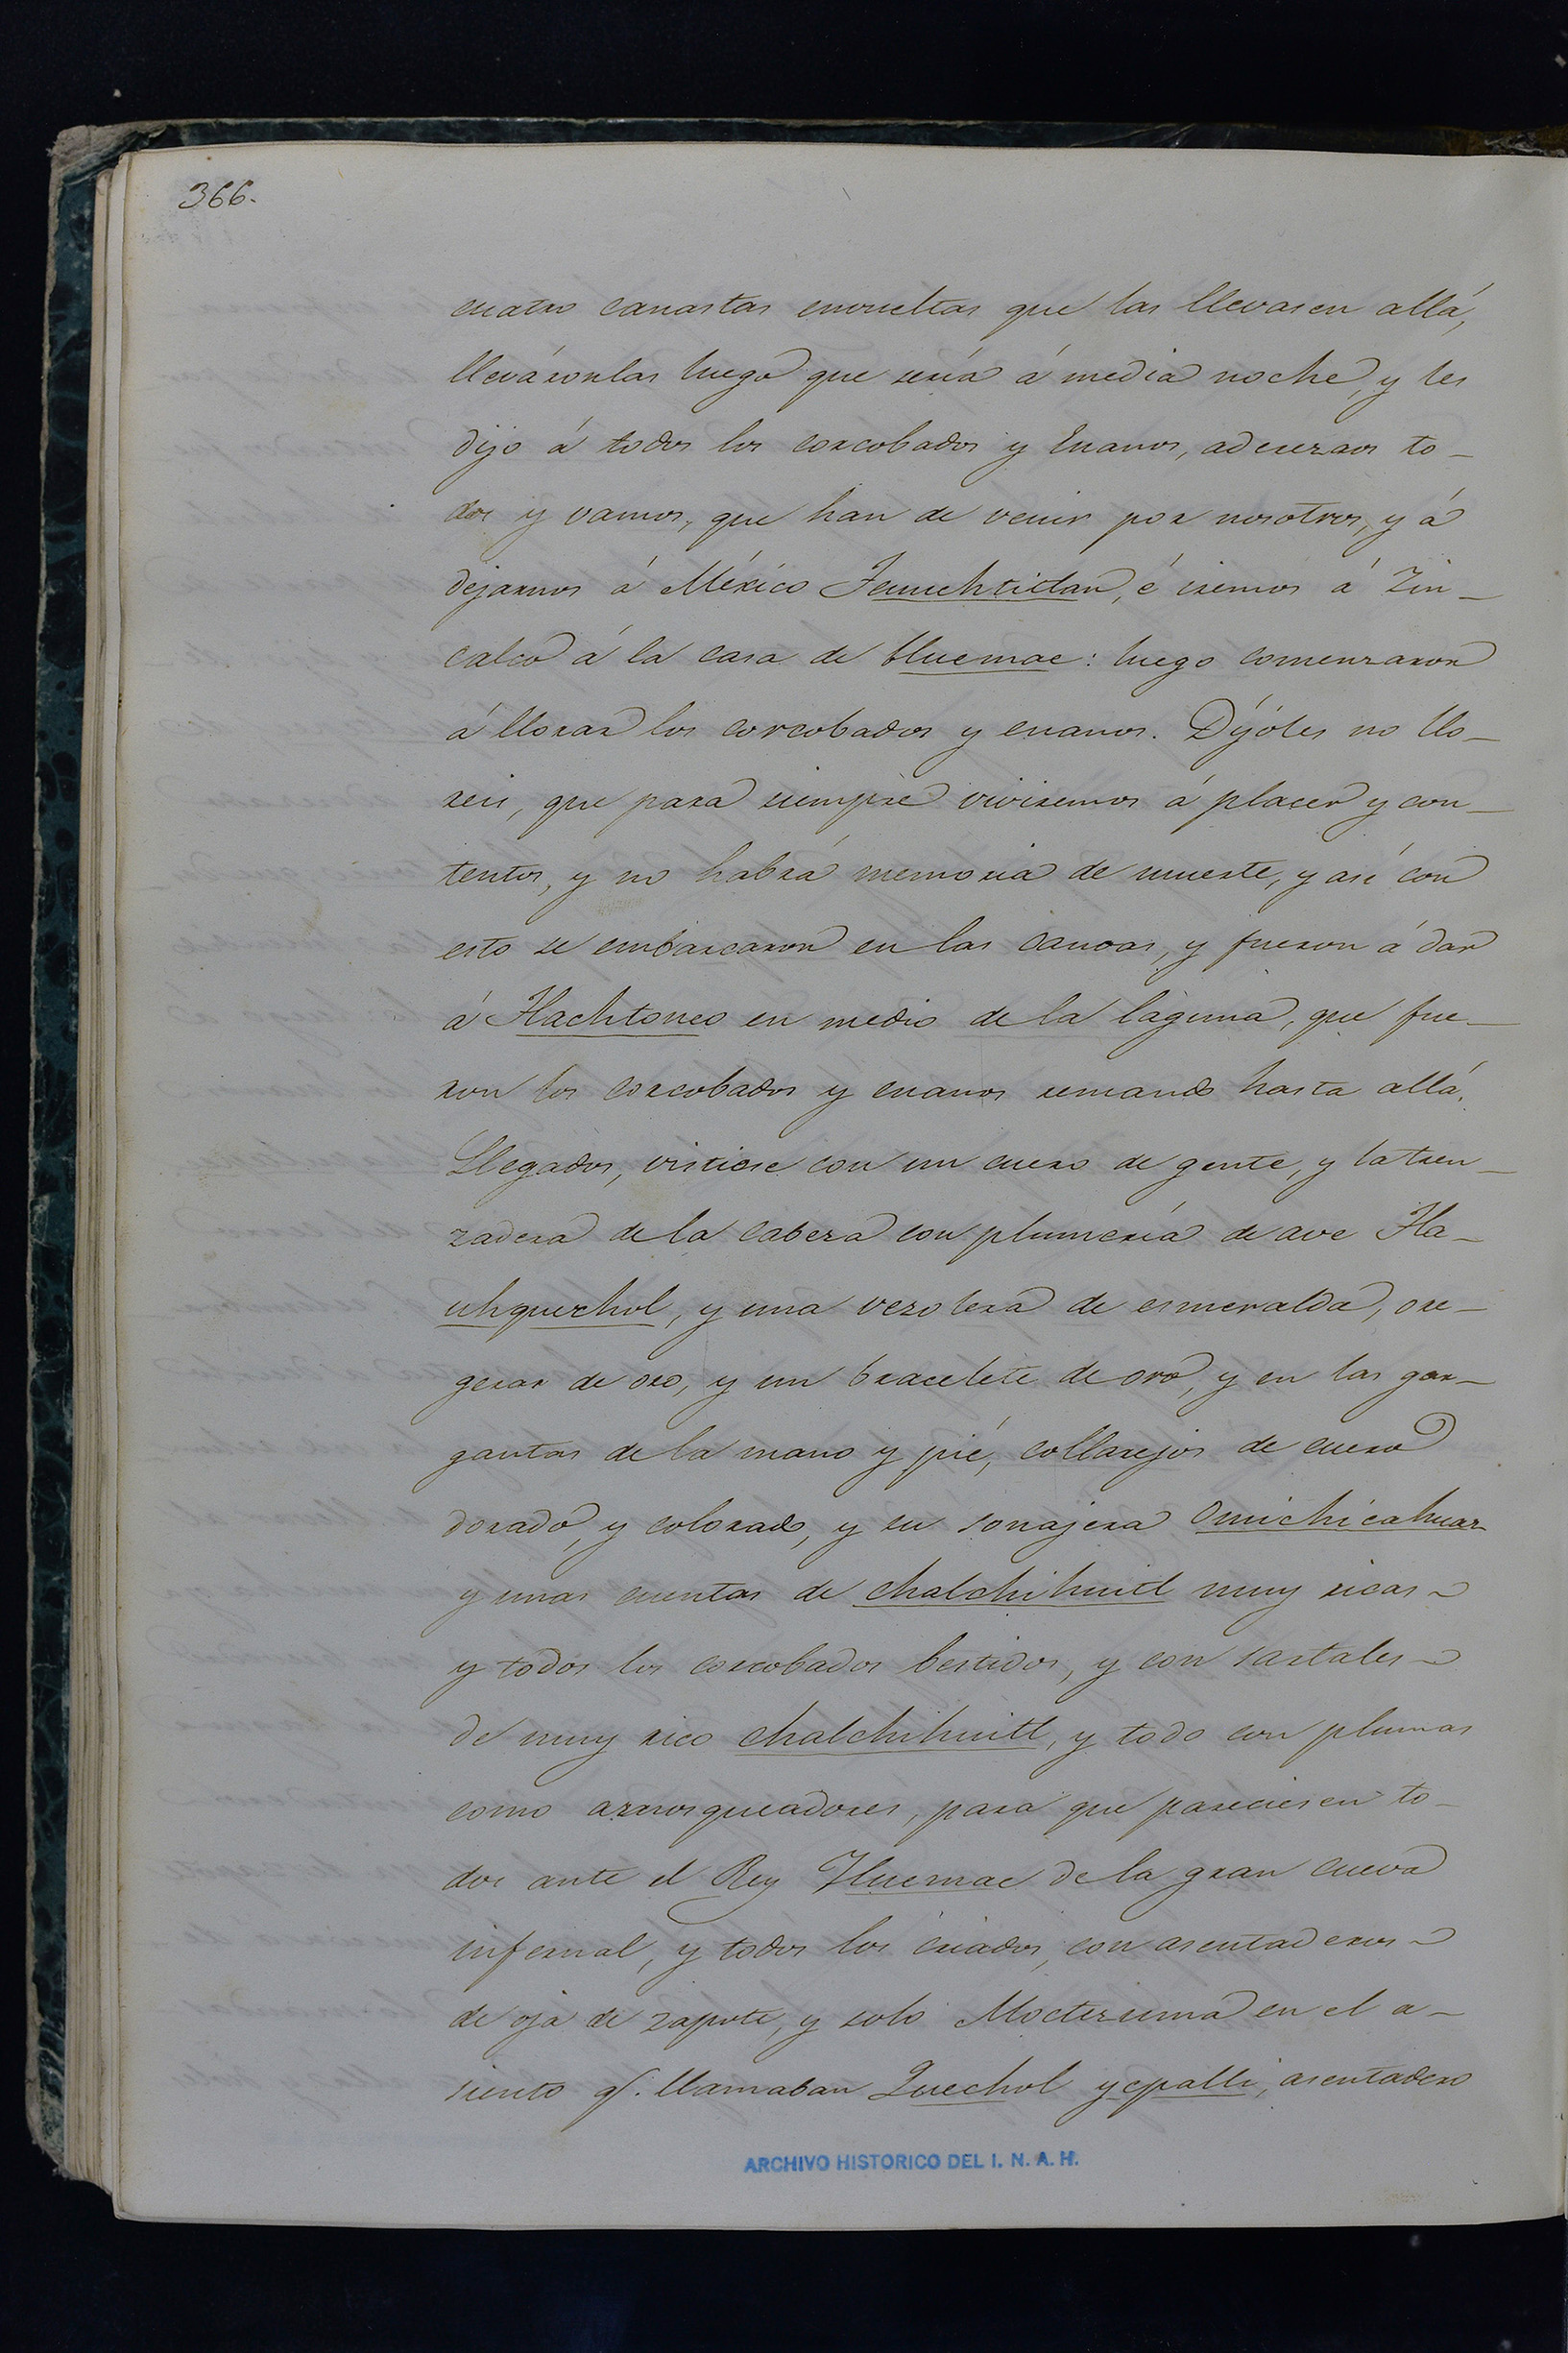 366.
cuatro canastas envueltas que las llevasen allá,
lleváronlas luego que sería á media noche, y les
dijo á todos los corcobados y Enanos, aderezaos to-
dos y vamos, que han de venir por nosotros, y á
dejarnos á México Tenuchtitlan, é iremos á Zin-
calco á la casa de Huemac: luego comenzaron
á llorar los corcobados y enanos. Díjoles no llo-
reis, que para siempre viviremos á placer y con-
tentos, y no habrá memoria de muerte, y así con
esto se embarcaron en las canoas, y fueron á dar
á Tlachtonco en medio de la laguna, que fue-
ron los corcobados y enanos remando hasta allá.
Llegados, vistiose con un cuero de gente, y la tren-
zadera de la cabeza con plumería de ave Tla-
uhquechol, y una vezolera de esmeralda, ore-
geras de oro, y un bracelete de oro, y en las gar-
gantas de la mano y pié, collarejos de cuero
dorado, y colorado, y su sonajera Omichicahuaz
y unas cuentas de chalchihuitl muy ricas
y todos los corcobados bestidos, y con sartales
de muy rico chalchihuitl, y todo con plumas
como armosqueadores, para que pareciesen to-
dos ante el Rey Huemac de la gran cueva
infernal, y todos los criados, con asentaderos
de oja de zapote, y solo Moctezuma en el a-
siento q.e llamaban Quechol ycpalli, asentadero
ARCHIVO HISTORICO DEL I. N. A. H.